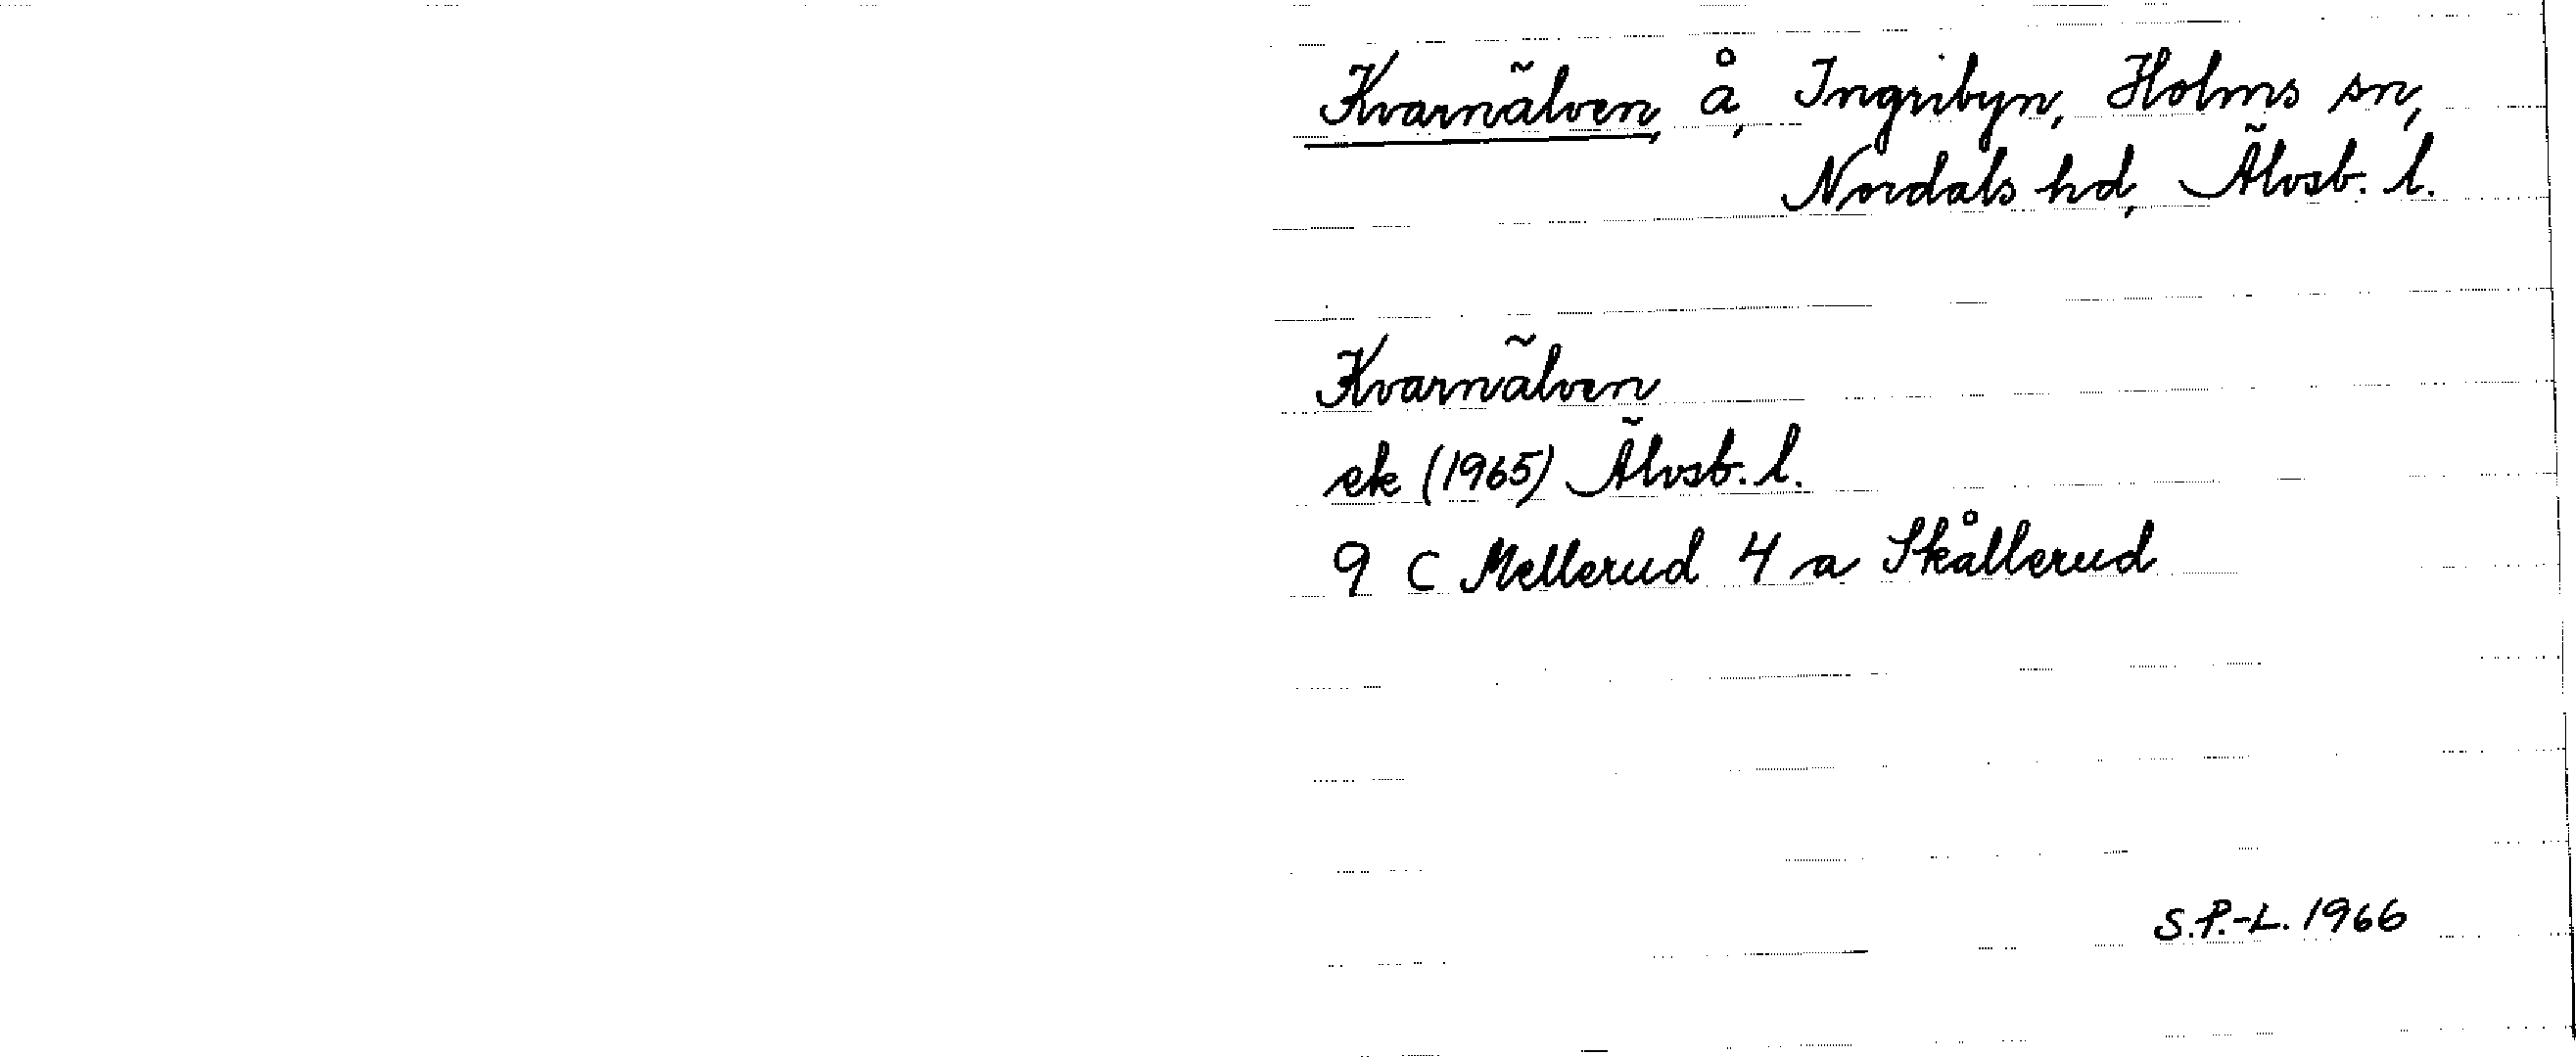 Kvarnälven, å, Ingribyn, Holms sn,
Nordals hd, Älvsb. l.
Kvarnälven
ek (1965) Älvsb. l.
9 C Mellerud 4 a Skållerud
S.P.-L. 1966